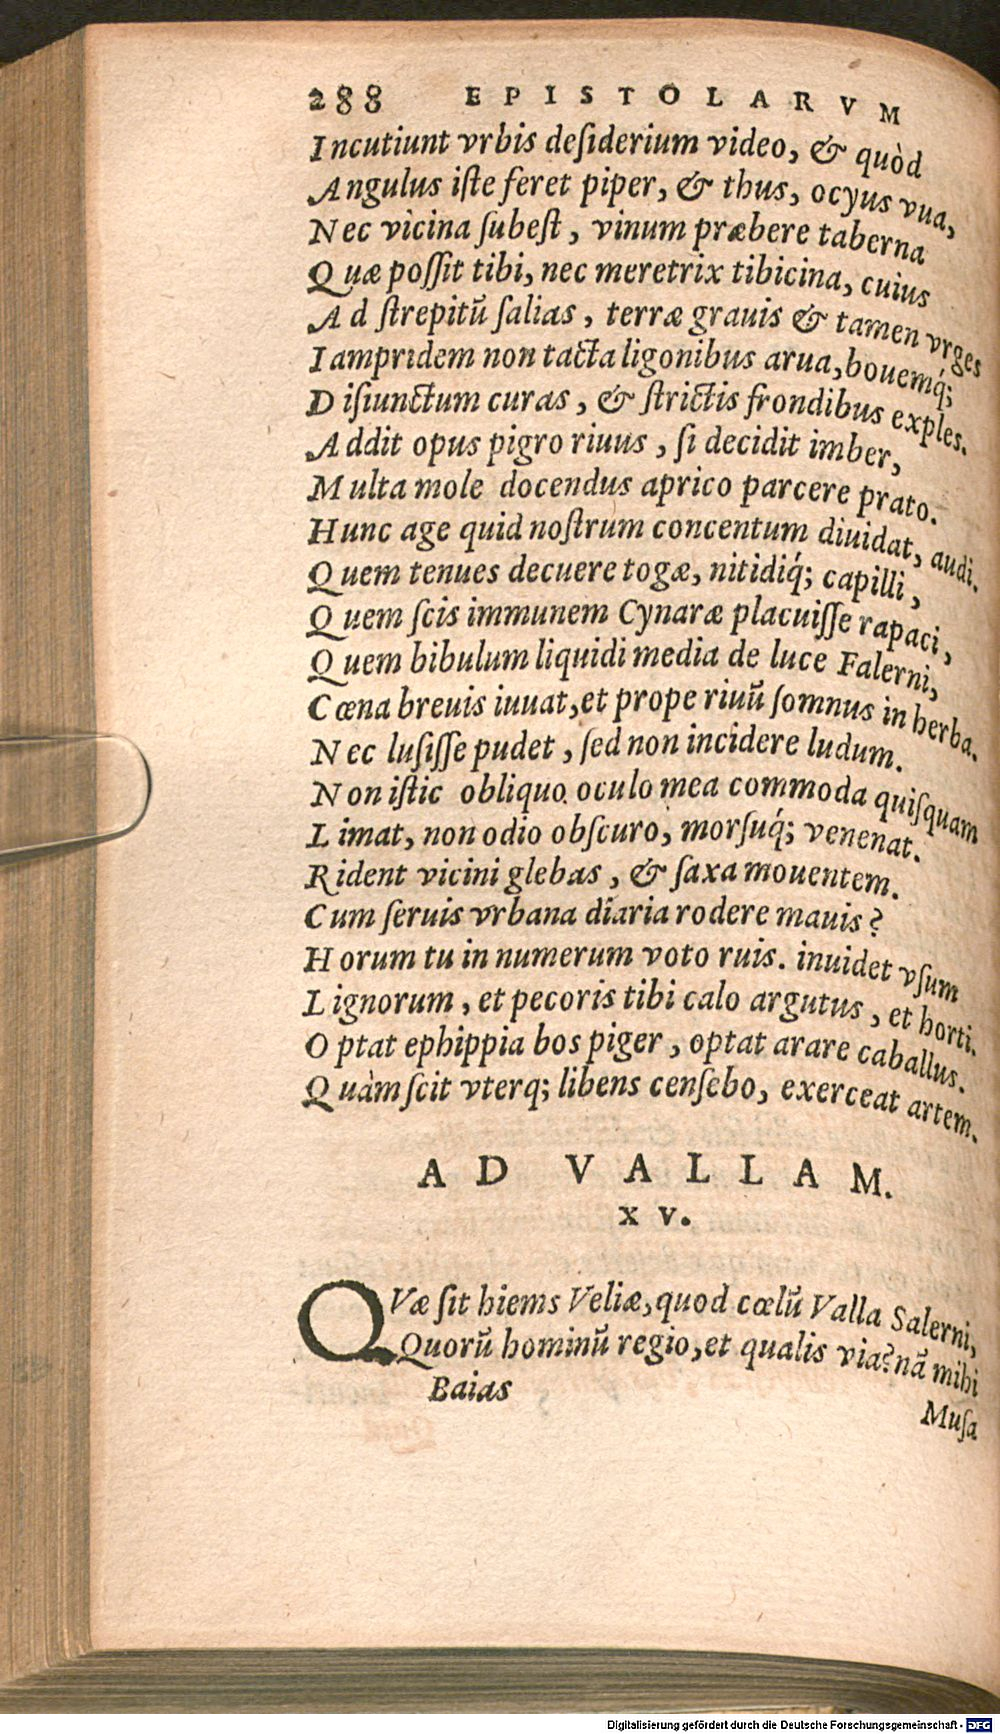 288 EPISTOLARVM
Incutiunt vrbis deſiderium video, & quòd
Angulus iſte feret piper, & thus, ocyus vua,
Nec vicina ſubeſt, vinum præbere taberna
Quæ poſſit tibi, nec meretrix tibicina, cuius
Ad ſtrepitū ſalias, terræ grauis & tamen vrges
Iampridem non tacta ligonibus arua, bouemq́;
Diſiunctum curas, & ſtrictis frondibus exples.
Addit opus pigro riuus, ſi decidit imber,
Multa mole docendus aprico parcere prato.
Hunc age quid noſtrum concentum diuidat, audi.
Quem tenues decuere togæ, nitidiq́; capilli,
Quem ſcis immunem Cynaræ placuiſſe rapaci,
Quem bibulum liquidi media de luce Falerni,
Cœna breuis iuuat, et prope riuū ſomnus in herba.
Nec luſiſſe pudet, ſed non incidere ludum.
Non iſtic obliquo oculo mea commoda quiſquam
Limat, non odio obſcuro, morſuq́; venenat.
Rident vicini glebas, & ſaxa mouentem.
Cum ſeruis vrbana diaria rodere mauis?
Horum tu in numerum voto ruis. inuidet vſum
Lignorum, et pecoris tibi calo argutus, et horti.
Optat ephippia bos piger, optat arare caballus.
Quàm ſcit vterq; libens cenſebo, exerceat artem.
AD VALLAM.
XV.
QVæ ſit hiems Veliæ, quod cœlū Valla Salerni,
Quorū hominū regio, et qualis via? nā mihi
Baias
Muſa
Digitalisierung gefördert durch die Deutsche Forschungsgemeinschaft - DFG